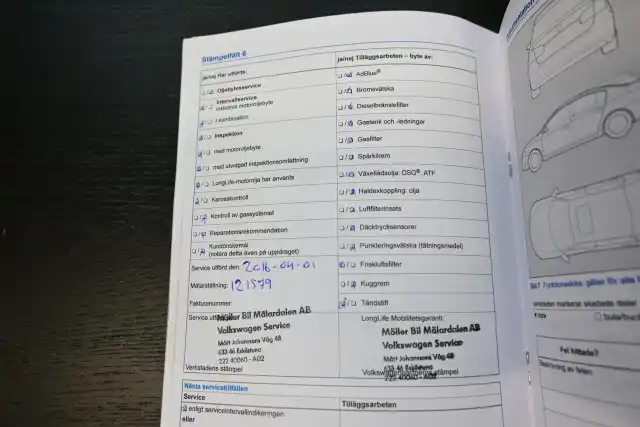 Stämpelfält 6
ja/nej Har utförts:
Oljebytesservice
Intervallservice
inklusive motoroljebyte
I kombination
Inspektion
med motoroljebyte
med utvidgad inspektionsomfattning
LongLife-motorolja har använts
Karosskontroll
Kontroll av gassystemet
Reparationsrekommendation
Kundönskemål
(notera detta även på uppdraget)
Service utförd den: 2016-04-01
Mätarställning: 121579
Fakturanummer:
Service utförd
Möller Bil Mälardalen AB
Volkswagen Service
Mått Johanssons Väg 48
633 46 Eskilstuna
222 40060 - A02
Verkstadens stämpel
ja/nej Tilläggsarbeten – byte av:
AdBlue®
Bromsvätska
Dieselbränslefilter
Gastank och -ledningar
Gasfilter
Spärkilrem
Växellådsolja: DSG®, ATF
Haldexkoppling: olja
Luftfilterinsats
Däcktryckssensorer
Punkteringsvätska (tätningsmedel)
Friskluftsfilter
Kuggrem
Tändstift
LongLife Mobilitetsgaranti:
Möller Bil Mälardalen AB
Volkswagen Service
Mått Johanssons Väg 48
633 46 Eskilstuna
222 40060 - A02
Volkswagenpartnerns stämpel
Nästa servicetillfällen
Service
Tilläggsarbeten
enligt serviceintervallindikeringen
eller